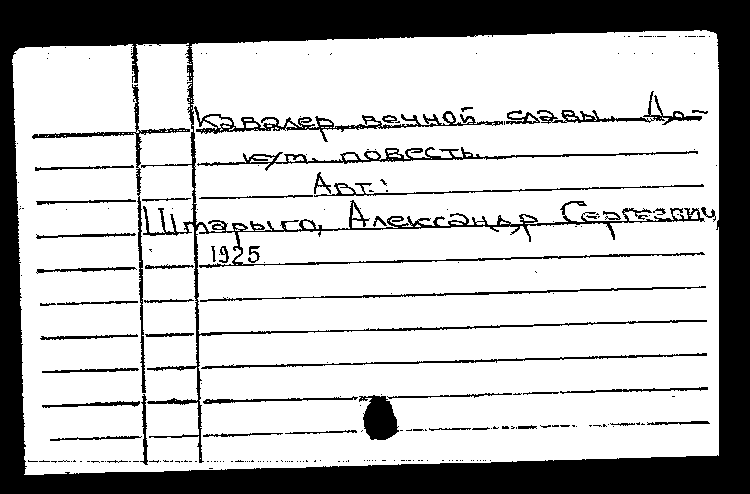 Кавалер вечной славы. До-
кум. повесть.
Авт.:
Штарыго, Александр Сергеевич,
1925